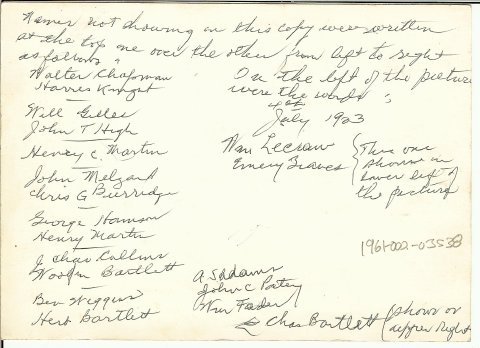 Names not showing on this copy were written
at the top one over the other from left to right
as follows "
Walter Chapman
Harres Knight
Will Gilles
John T High
Henry C. Martin
John Melgard
Chris G Burridge
George Hanson
Henry Martin
J Chas Collins
Bartlett
Ben Wiggins
Herb Bartlett
On the left of the picture
were the words "
4th
July 1903
Wm Lecraw
Emery Graves
This one
shown on
lower left of
the picture
1961-002-03538
A S Adams
John C
Wm Fader
Chas Bartlett
(shown on
upper right